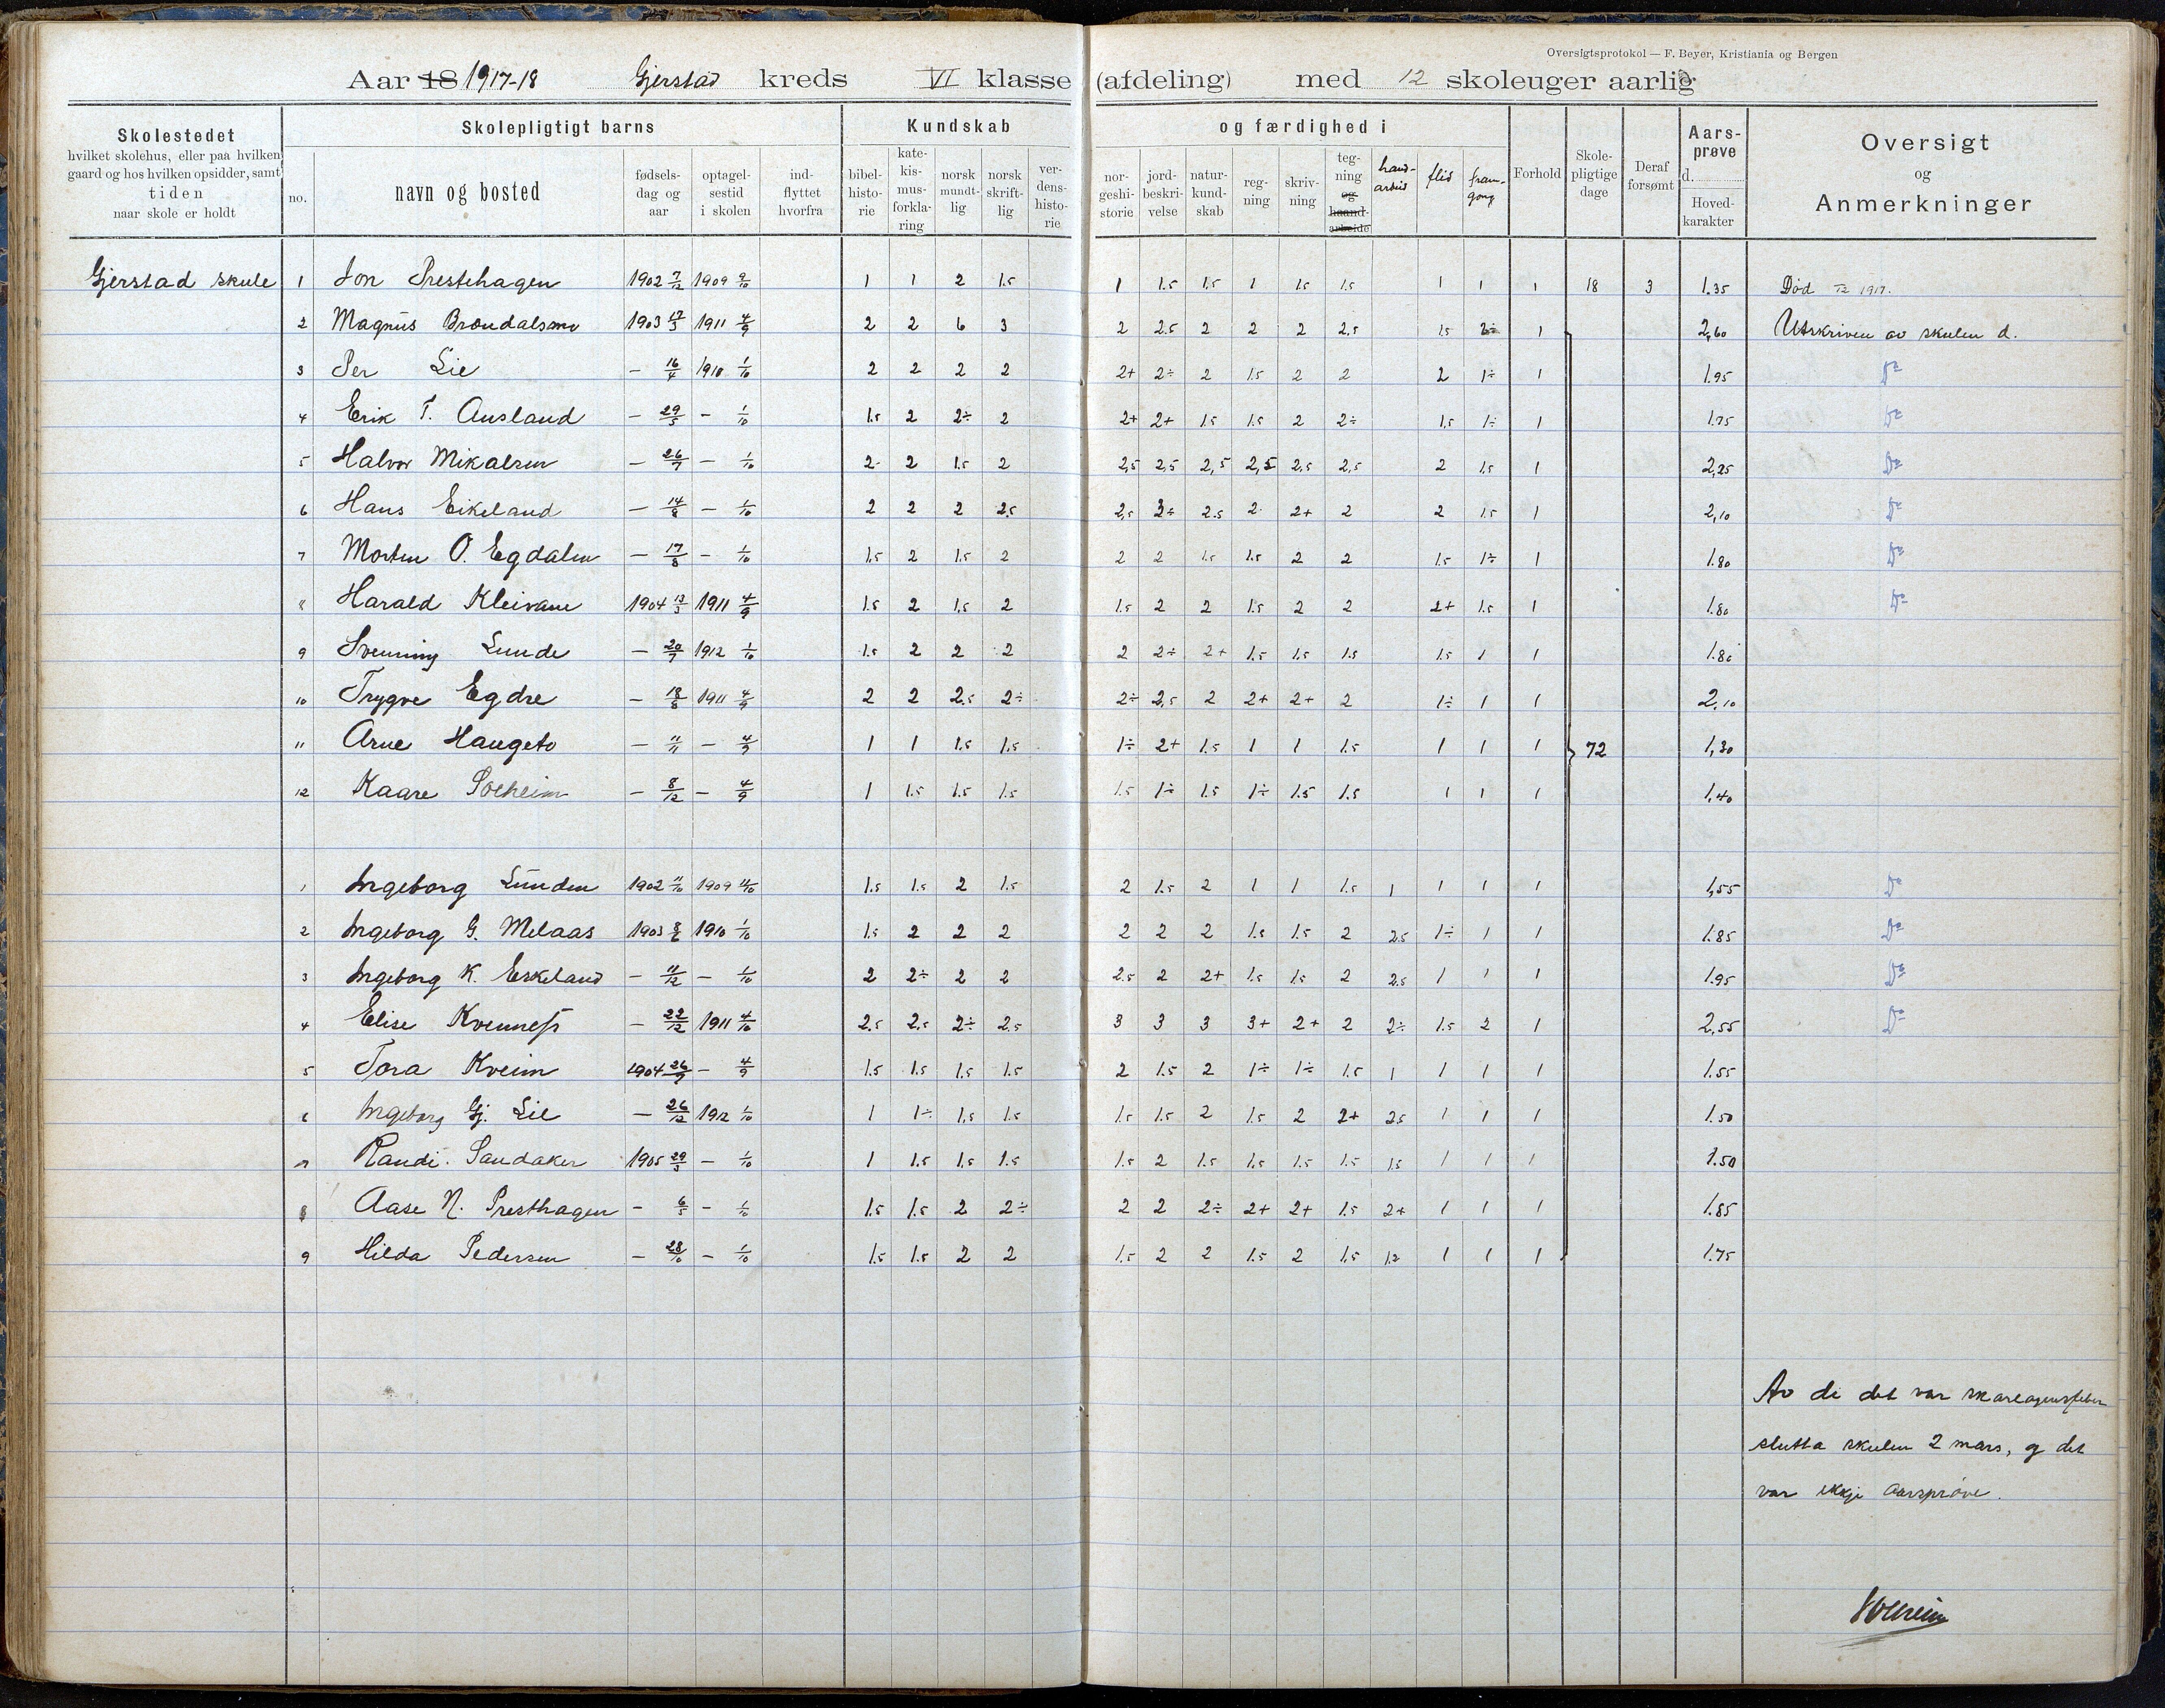 Oversigtsprotokol — F. Beyer, Kristiania og Bergen
Aar 18 1917-18 Gjerstad kreds VI klasse (afdeling) med 12 skoleuger aarlig
Skolestedet
hvilket skolehus, eller paa hvilken
gaard og hos hvilken opsidder, samt
tiden
naar skole er holdt
Skolepligtigt barns
no.
navn og bosted
fødsels-
dag og
aar
optagel-
sestid
i skolen
ind-
flyttet
hvorfra
Kundskab
bibel-
histo-
rie
kate-
kis-
mus-
forkla-
ring
norsk
mundt-
lig
norsk
skrift-
lig
ver-
dens-
histo-
rie
og færdighed i
nor-
geshi-
storie
jord-
beskri-
velse
natur-
kund-
skab
reg-
ning
skriv-
ning
teg-
ning
og
haand-
arbeide
hand-
arbeid
flid
fram-
gong
Forhold
Skole-
pligtige
dage
Deraf
forsømt
Aars-
prøve
d.
Hoved-
karakter
Oversigt
og
Anmerkninger
Gjerstad skule 1 Jon Prestehagen 1902 7/12 1909 9/10 1 1 2 1.5 1 1.5 1.5 1 1.5 1.5 1 1 1 18 3 1.35 Død /12 1917.
2 Magnus Brøndalsmo 1903 17/3 1911 4/9 2 2 6 3 2 2.5 2 2 2 2.5 1.5 2÷ 1 2,60 Utskriven av skulen d.
3 Per Lie — 16/4 1910 1/10 2 2 2 2 2+ 2÷ 2 1.5 2 2 2 1÷ 1 1.95 Do
4 Erik T. Ausland — 29/5 — 1/10 1.5 2 2÷ 2 2+ 2+ 1.5 1.5 2 2÷ 1,5 1÷ 1 1.75 Do
5 Halvor Mikalsen — 26/7 — 1/10 2 2 1.5 2 2,5 2,5 2,5 2,5 2,5 2,5 2 1.5 1 2,25 Do
6 Hans Eikeland — 14/8 — 1/10 2 2 2 2.5 2,5 3÷ 2.5 2 2+ 2 2 1.5 1 2,10 Do
7 Morten O. Egdalen — 17/8 — 1/10 1.5 2 1.5 2 2 2 1.5 1.5 2 2 1.5 1÷ 1 1.80 Do
8 Harald Kleivane 1904 13/3 1911 4/9 1.5 2 1.5 2 1.5 2 2 1.5 2 2 2+ 1.5 1 1.80 Do
9 Svenning Lunde — 20/7 1912 1/10 1.5 2 2 2 2 2÷ 2+ 1.5 1.5 1.5 1.5 1 1 1.80
10 Trygve Egdre — 18/8 1911 4/9 2 2 2.5 2÷ 2÷ 2,5 2 2+ 2+ 2 1÷ 1 1 2.10
11 Arne Haugeto — 11/11 — 4/9 1 1 1.5 1.5 1÷ 2+ 1.5 1 1 1.5 1 1 1 72 1,30
12 Kaare Solheim — 8/12 — 4/9 1 1.5 1.5 1.5 1.5 1÷ 1.5 1÷ 1.5 1.5 1 1 1 1,40
1 Ingeborg Lunden 1902 11/10 1909 11/10 1.5 1.5 2 1.5 2 1.5 2 1 1 1.5 1 1 1 1 1,55 Do
2 Ingeborg G. Melaas 1903 8/6 1910 1/10 1.5 2 2 2 2 2 2 1.5 1.5 2 2.5 1÷ 1 1 1.85 Do
3 Ingeborg K. Eskeland — 11/12 — 1/10 2 2÷ 2 2 2.5 2 2+ 1.5 1.5 2 2.5 1 1 1 1.95 Do
4 Elise Kvennefs — 22/12 1911 4/10 2.5 2.5 2÷ 2,5 3 3 3 3+ 2+ 2 2÷ 1.5 2 1 2,55 Do
5 Tora Kveim 1904 26/9 — 4/9 1.5 1.5 1.5 1.5 2 1.5 2 1÷ 1÷ 1.5 1 1 1 1 1.55
6 Ingeborg Gj. Lie — 26/12 1912 1/10 1 1÷ 1.5 1.5 1.5 1.5 2 1.5 2 2+ 2.5 1 1 1 1.50
7 Randi Sandaker 1905 29/3 — 1/10 1 1.5 1.5 1.5 1.5 2 1.5 1.5 1.5 1.5 1.5 1 1 1 1.50
8 Aase N. Presthagen — 6/5 — 1/10 1.5 1.5 2 2÷ 2 2 2÷ 2+ 2+ 1.5 2+ 1 1 1 1.85
9 Hilda Pedersen — 28/10 — 1/10 1.5 1.5 2 2 1.5 2 2 1.5 2 1.5 1.2 1 1 1 1.75
Av di det var skarlagensfeber
slutta skulen 2 mars, og det
var ikkje aarsprøve.
Solheim